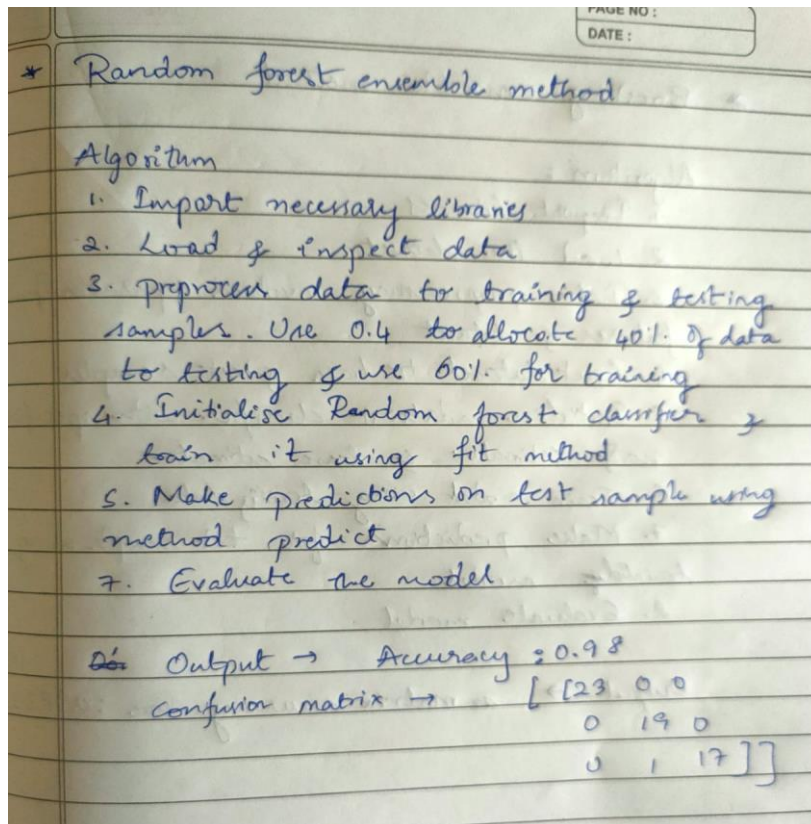 PAGE NO :
DATE :
* Random forest ensemble method
Algorithm
1. Import necessary libraries
2. Load & inspect data
3. preprocess data to training & testing
samples. Use 0.4 to allocate 40% of data
to testing & use 60% for training
4. Initialise Random forest classifier &
train it using fit method
5. Make predictions on test sample using
method predict
7. Evaluate the model
Output → Accuracy : 0.98
confusion matrix → [ [23 0 0
0 19 0
0 1 17 ] ]